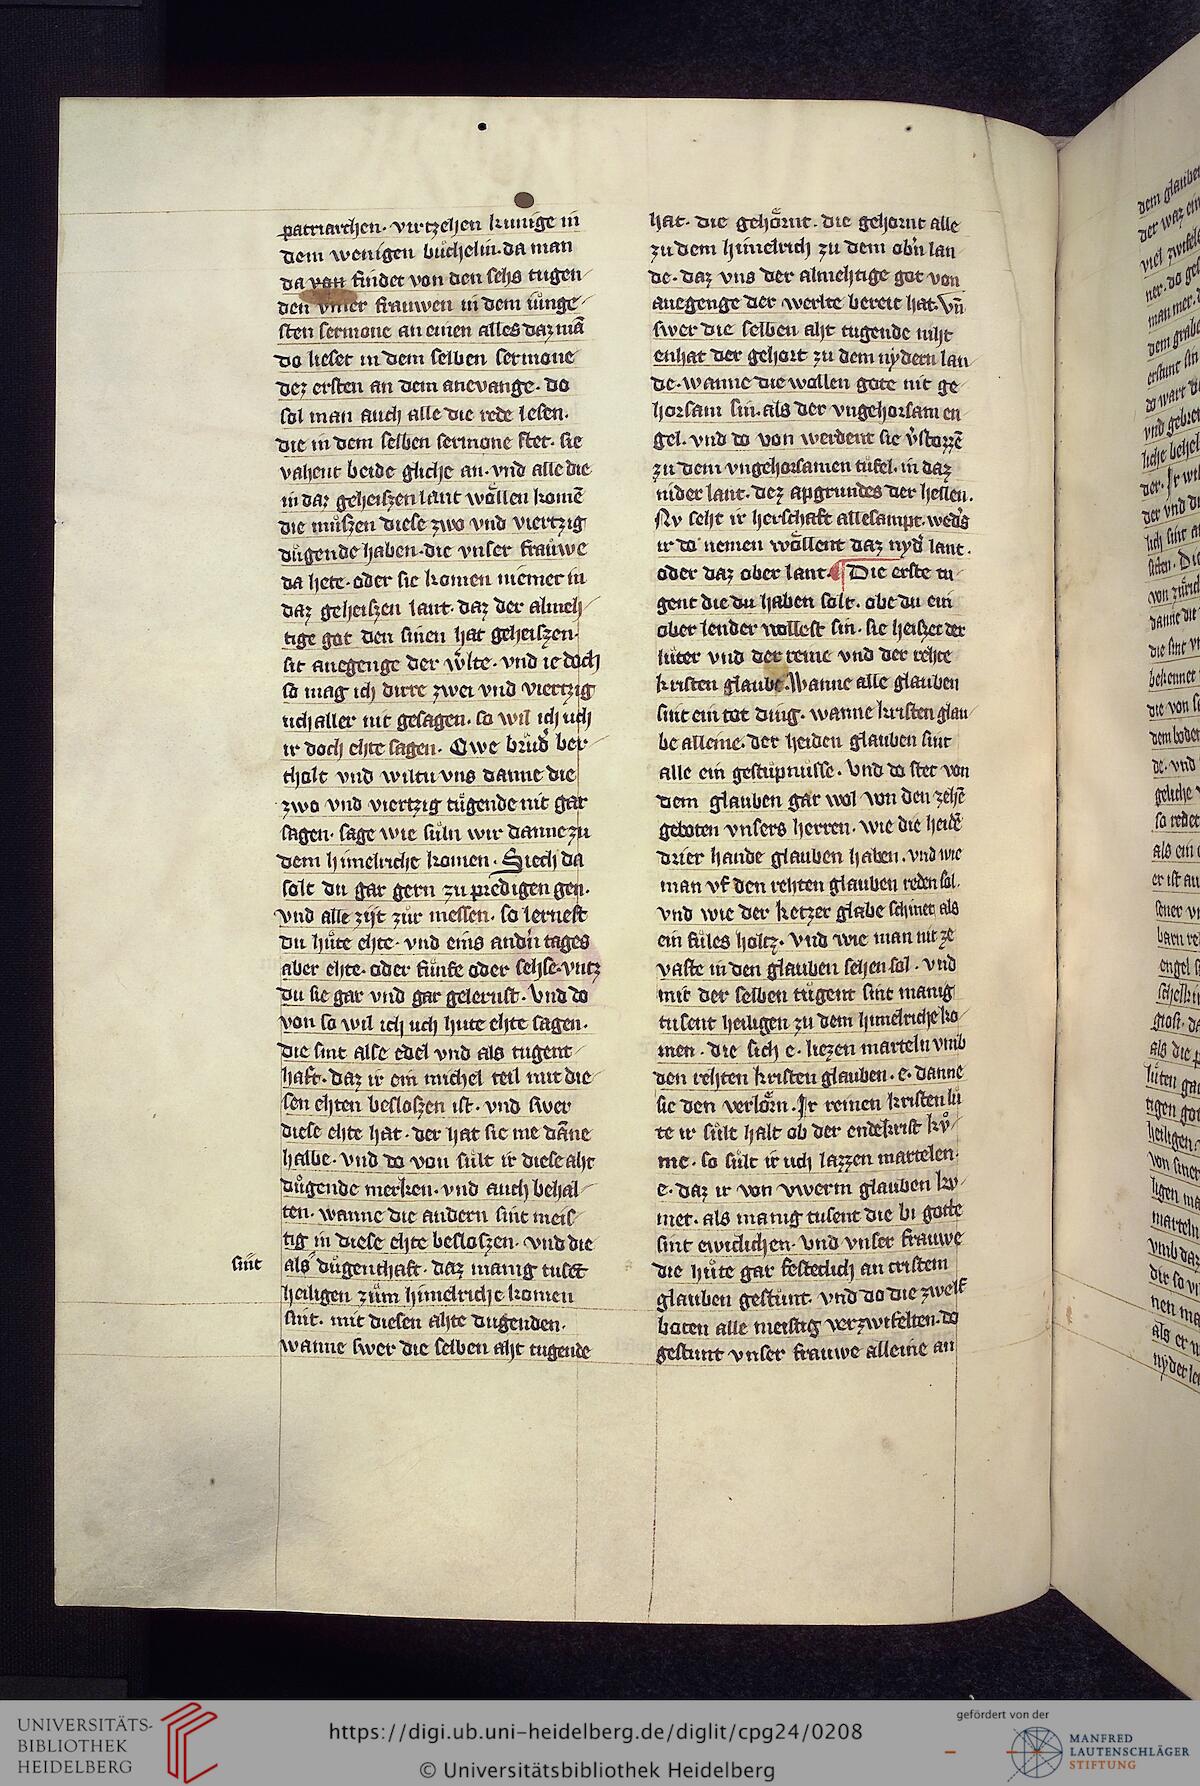 patriarchen · virtzehen kunige in
dem wenigen buͤchelin · da man
da von findet von den sehs tugen
den vnser frauwen in dem iuͤnge
sten sermone an einen alles daz mā
do lieset in dem selben sermone
dez ersten an dem anevange · do
sol man auch alle die rede lesen ·
die in dem selben sermone stet · sie
vahent beide gliche an · vnd alle die
in daz geheiszen lant woͤllen komē
die muͤszen diese zwo vnd viertzig
duͤgende haben · die vnser frauͤwe
da hete · oder sie komen niemer in
daz geheiszen lant · daz der almeh
tige got den sinen hat geheiszen ·
sit anegenge der w̉lte · vnd ie doch
so mag ich dirre zwei vnd viertzig
uch aller nit gesagen · so wil ich uch
ir doch ehte sagen · Owe bruͤd̉ ber
tholt vnd wiltu vns danne die
zwo vnd viertzig tuͤgende nit gar
sagen · sage wie suͤln wir danne zu
dem himelriche komen · Siech da
solt du gar gern zu predigen gen ·
vnd alle zijt zuͤr messen · so lernest
du huͤte ehte · vnd eins andn̉ tages
aber ehte · oder fuͤnfe oder sehse · vntz
du sie gar vnd gar gelernst · Vnd do
von so wil ich uch hute ehte sagen ·
die sint alse edel vnd als tugent
haft · daz ir ein michel teil mit die
sen ehten besloszen ist · vnd swer
diese ehte hat · der hat sie me dāne
halbe · vnd do von suͤlt ir diese aht
duͤgende merken · vnd auch behal
ten · wanne die andern sint meis
tig in diese ehte besloszen · vnd die
sint als duͤgenthaft · daz manig tusēt
heiligen zuͤm himelriche komen
sint · mit diesen ahte dugenden ·
wanne swer die selben aht tugende
hat · die gehoͤrnt · die gehornt alle
zu dem himelrich zu dem obn̉ lan
de · daz vns der almehtige got von
anegenge der werlte bereit hat · Vn̄
swer die selben aht tugende niht
enhat der gehort zu dem nydern lan
de · wanne die wollen gote nit ge
horsam sin · als der vngehorsam en
gel · vnd do von werdent sie v̉stozzē
zu dem vngehorsamen tuͤfel · in daz
nider lant · dez apgrundes der hellen ·
Nv seht ir herschaft allesampt · wed̉s
ir do nemen woͤllent daz nyd̉ lant ·
oder daz ober lant · ¶ Die erste tu
gent die du haben solt · obe du ein
ober lender wollest sin · sie heiszet der
luter vnd der reine vnd der rehte
kristen glaube · Wanne alle glauben
sint ein tot ding · wanne kristen glau
be alleine · der heiden glauben sint
alle ein gestuͤpnuͤsse · Vnd do stet von
dem glauben gar wol von den zehē
geboten vnsers herren · wie die heidē
drier hande glauben haben · vnd wie
man vf den rehten glauben reden sol ·
vnd wie der ketzer glabe schinet als
ein fuͤles holtz · vnd wie man nit ze
vaste in den glauben sehen sol · vnd
mit der selben tuͤgent sint manig
tusent heiligen zu dem himelriche ko
men · die sich e · liezen marteln vmb
den rehten kristen glauben · e · danne
sie den verloͤrn · Ir reinen kristen luͤ
te ir suͤlt halt ob der endekrist kuͦ
me · so suͤlt ir uch lazzen martelen ·
e · daz ir von vwerm glauben ko
met · als manig tusent die bi gotte
sint ewiclichen · vnd vnser frauwe
die huͤte gar festeclich an cristem
glauben gestuͤnt · vnd do die zwelf
boten alle meistig verzwifelten · do
gestunt vnser frauwe alleine an
UNIVERSITÄTS-
BIBLIOTHEK
HEIDELBERG
https://digi.ub.uni-heidelberg.de/diglit/cpg24/0208
© Universitätsbibliothek Heidelberg
gefördert von der
MANFRED
LAUTENSCHLÄGER
STIFTUNG